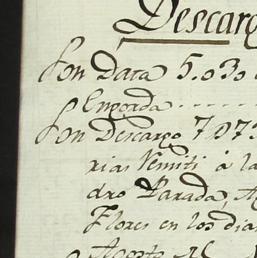 Descarg
Son Data 5.030
Engorda
Son Descargo 7073
rias Vemiti à la
dro Parada, A
Flores en los dia
Agosto